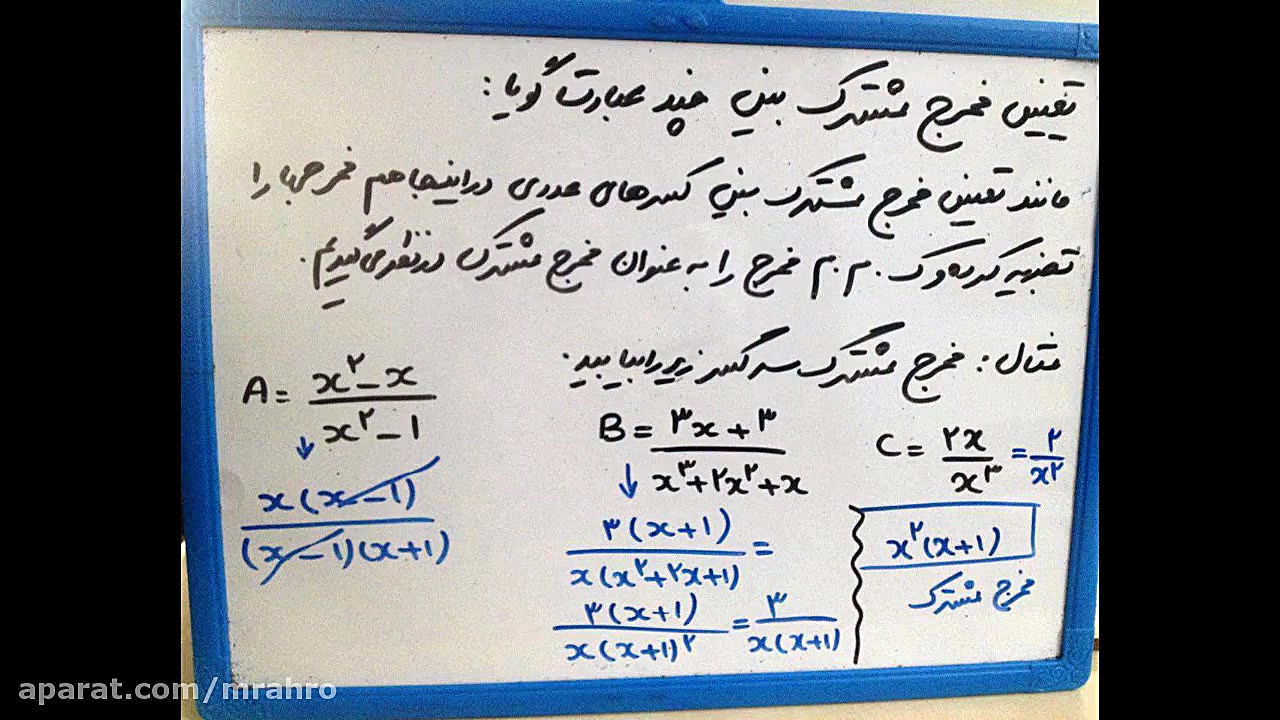 تعیین مخرج مشترک بین چند عبارت گویا:
مانند تعیین مخرج مشترک بین کسرهای عددی در اینجا هم مخرج‌ها را
تجزیه کرده و ک.م.م مخرج را به عنوان مخرج مشترک در نظر می‌گیریم.
مثال: مخرج مشترک سه کسر زیر را بیابید.
A = (x^۲ - x) / (x^۲ - 1)
↓
x(x - 1) / (x - 1)(x + 1)
B = (۳x + ۳) / (x^۳ + ۲x^۲ + x)
↓
۳(x + 1) / x(x^۲ + ۲x + 1) =
۳(x + 1) / x(x + 1)^۲ = ۳ / x(x + 1)
C = ۲x / x^۳ = ۲ / x^۲
x^۲(x + 1)
مخرج مشترک
aparat.com/mrahro